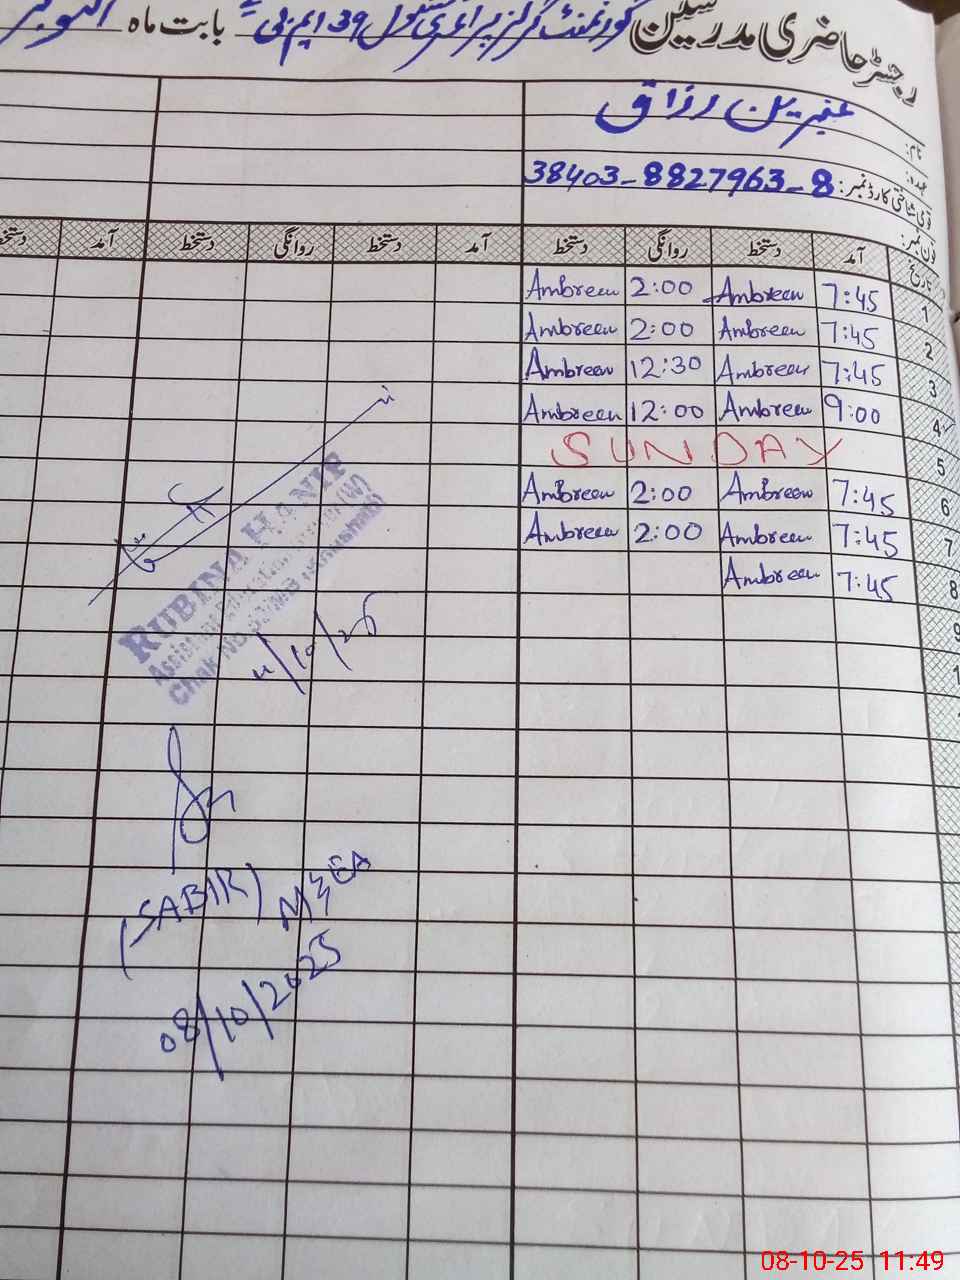 رجسٹر حاضری مدرسین گورنمنٹ گرلز پرائمری سکول 39 ایم بی بابت ماہ اکتوبر
نام: عنبرین رزاق
عہدہ:
قومی شناختی کارڈ نمبر: 38403-8827963-8
فون نمبر:
تاریخ آمد دستخط روانگی دستخط آمد دستخط روانگی دستخط آمد دستخط
1 7:45 Ambreen 2:00 Ambreen
2 7:45 Ambreen 2:00 Ambreen
3 7:45 Ambreen 12:30 Ambreen
4 9:00 Ambreen 12:00 Ambreen
5 SUNDAY
6 7:45 Ambreen 2:00 Ambreen
7 7:45 Ambreen 2:00 Ambreen
8 7:45 Ambreen
9
1
RUBINA HANIF
Assistant Education (W)
Chak No.
4/10/25
(SABIR)
M&EA
08/10/2025
08-10-25 11:49